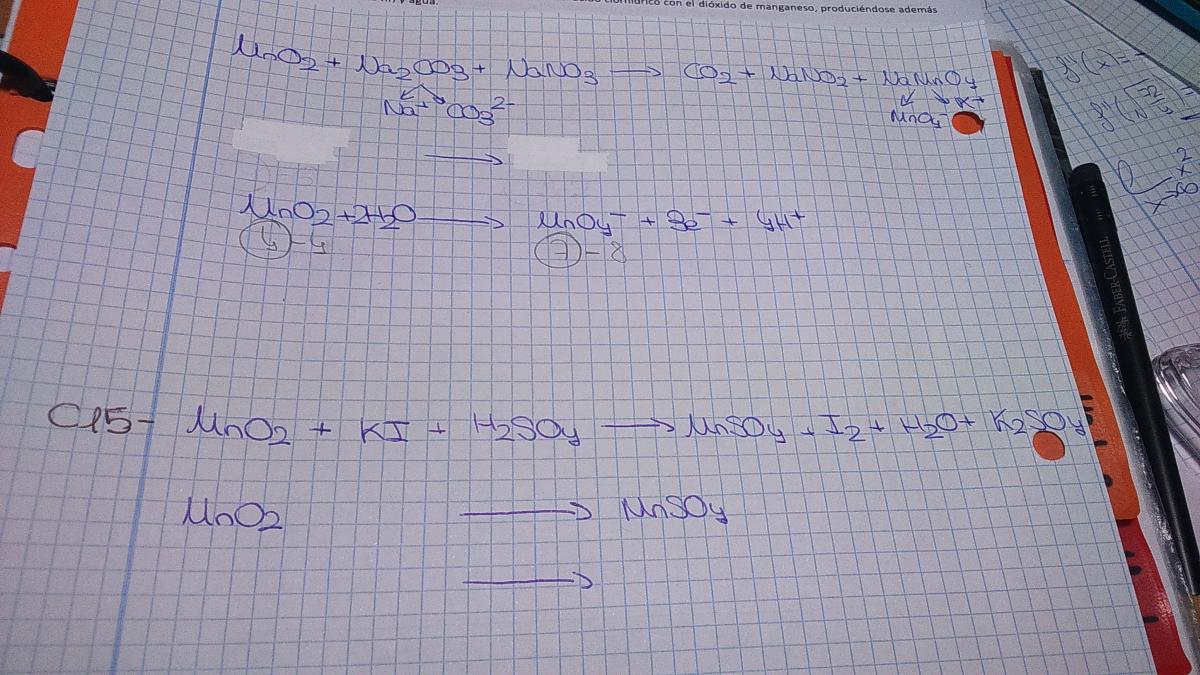 y agua.
con el dióxido de manganeso, produciéndose además
MnO2 + Na2CO3 + NaNO3 → CO2 + NaNO2 + NaMnO4
Na+ CO3 2- MnO4- K+
→
MnO2 + 2H2O → MnO4- + 3e- + 4H+
4 - 4 7 - 8
C15- MnO2 + KI + H2SO4 → MnSO4 + I2 + H2O + K2SO4
MnO2 → MnSO4
→
FABER-CASTELL